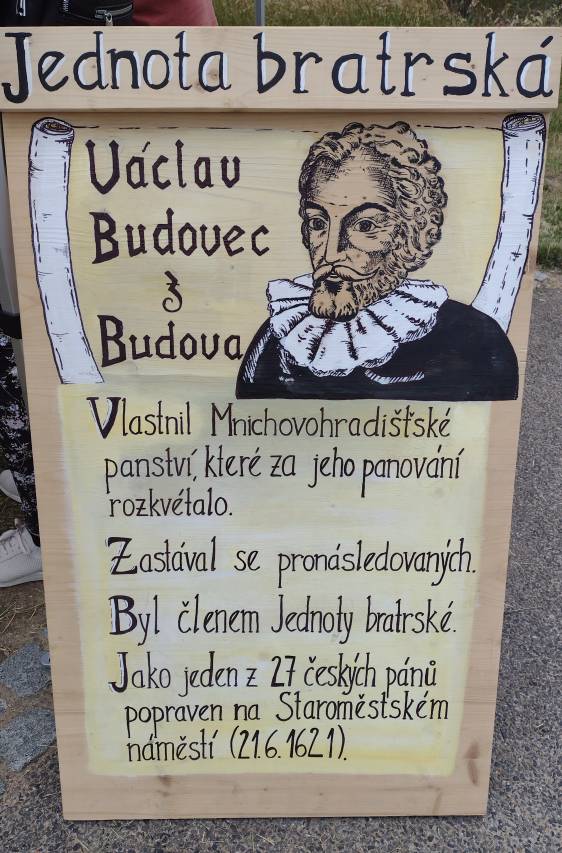 Jednota bratrská
Václav
Budovec
z
Budova
Vlastnil Mnichovohradišťské
panství, které za jeho panování
rozkvétalo.
Zastával se pronásledovaných.
Byl členem Jednoty bratrské.
Jako jeden z 27 českých pánů
popraven na Staroměstském
náměstí (21.6.1621).